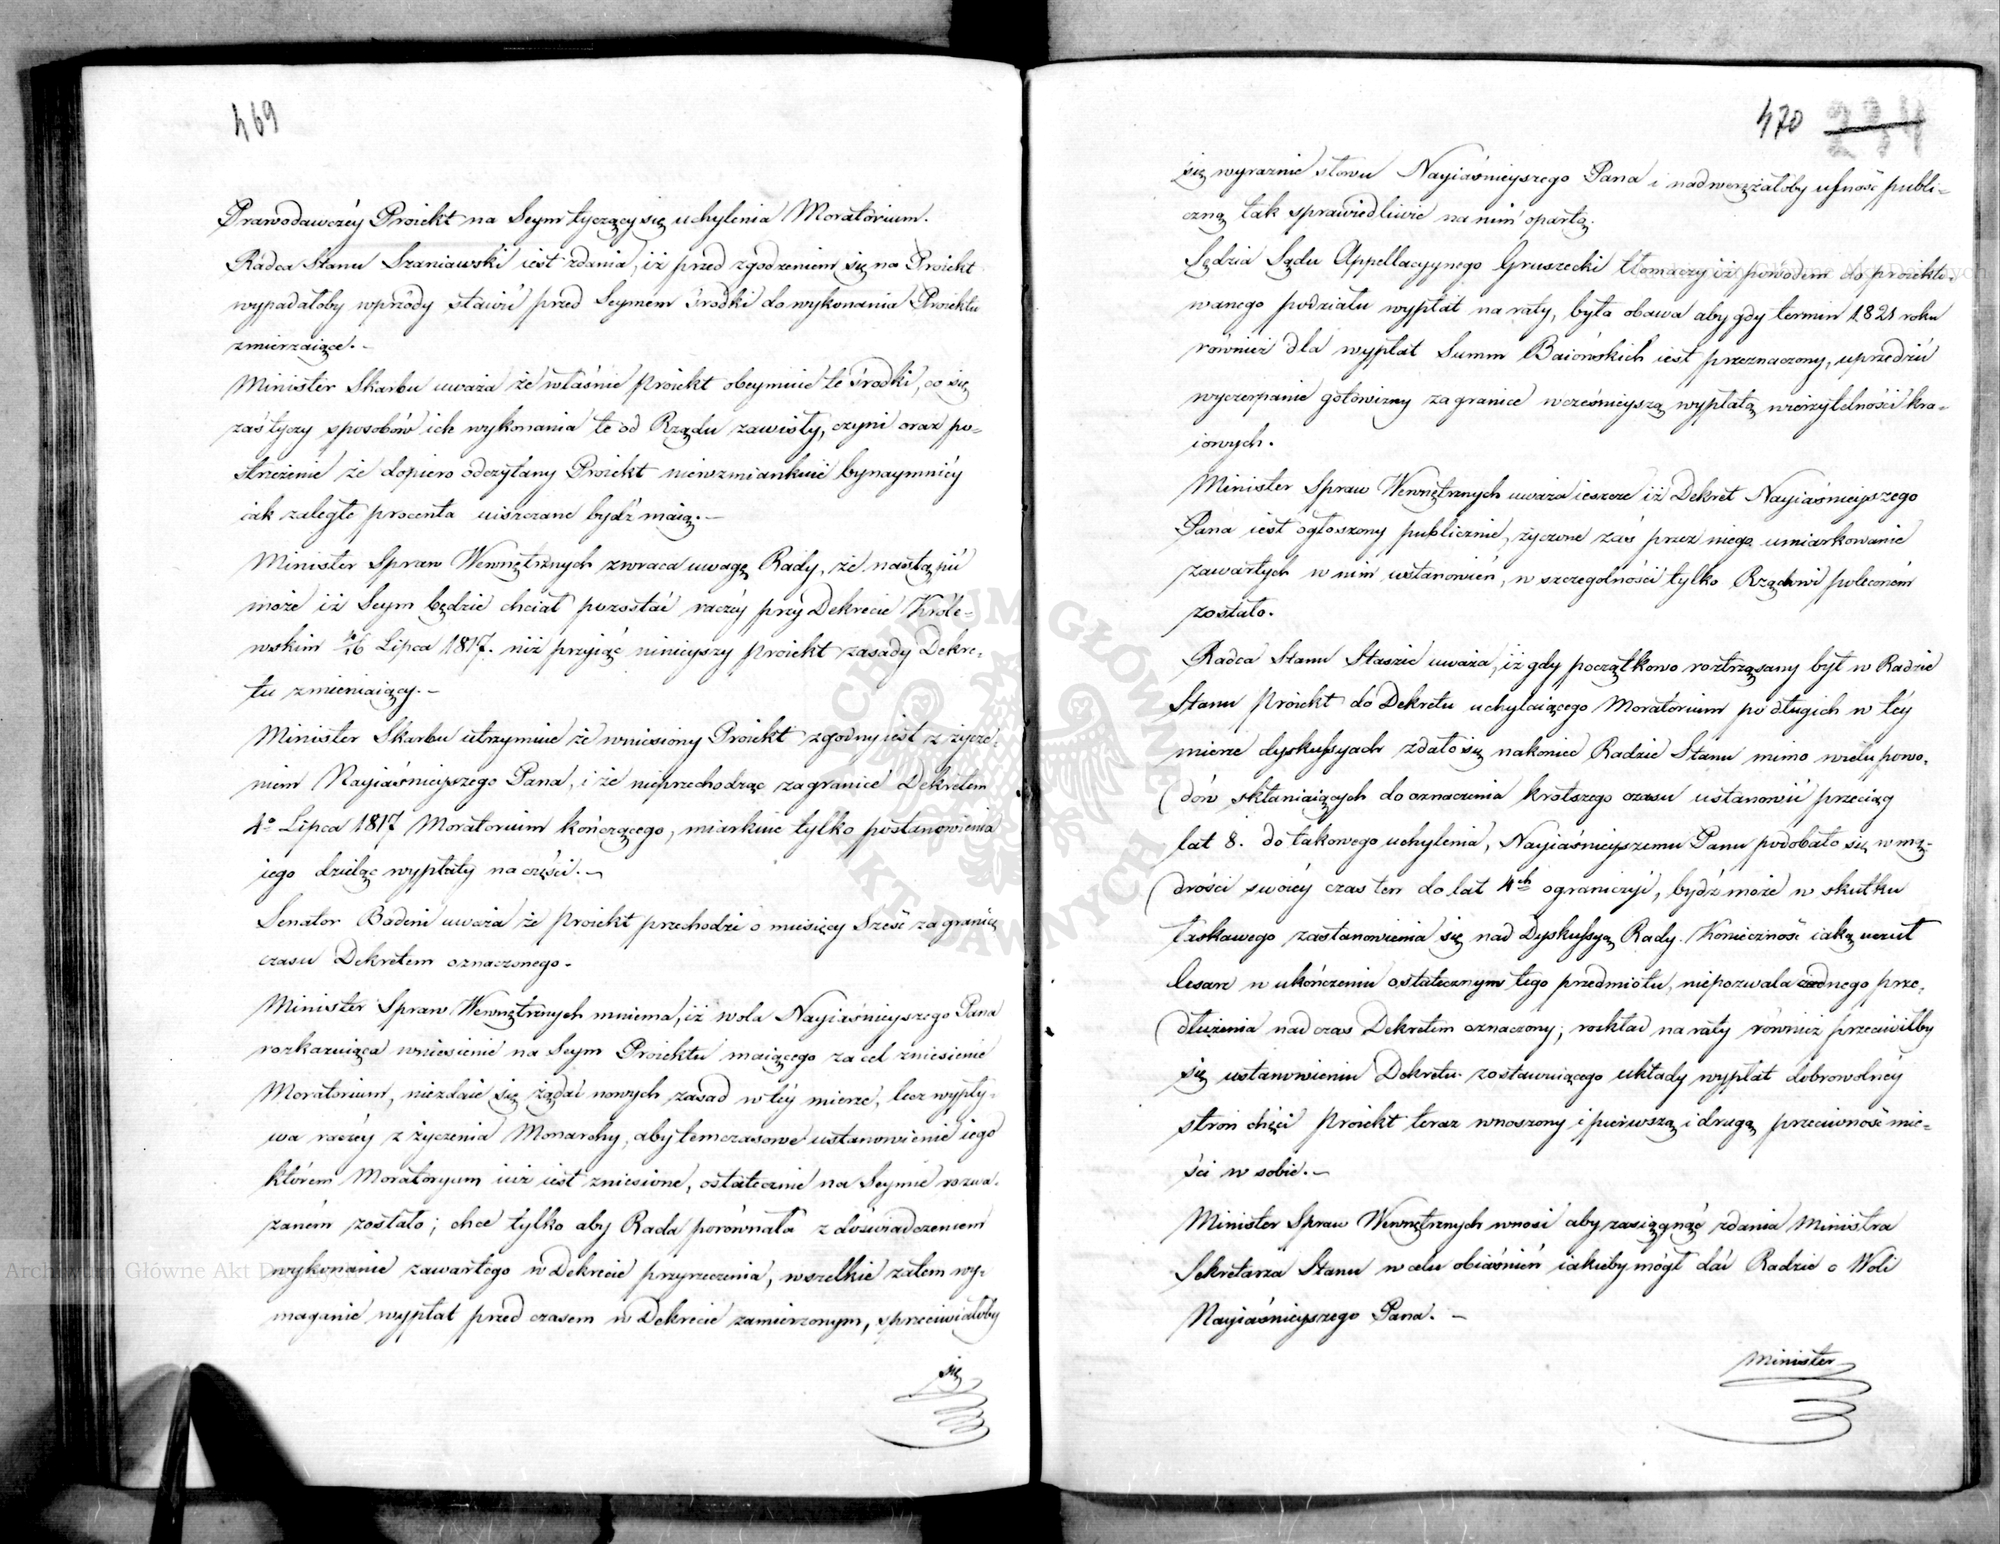 469
Prawodawczéy Proiekt na Seym tyczący się uchylenia Moratorium.
Radca Stanu Szaniawski iest zdania, iż przed zgodzeniem się na Proiekt
wypadałoby wprzódy stawić przed Seymem środki do wykonania Proiektu
zmierzaiące. –
Minister Skarbu uważa że właśnie proiekt obeymuie te środki, co się
zaś tyczy sposobów ich wykonania te od Rządu zawisły, czyni oraz po-
strzeżenie że dopiero odczytany Proiekt niewzmiankuie bynaymniéy
iak zaległe procenta uiszczane bydź maią. –
Minister Spraw Wewnętrznych zwraca uwagę Rady, że nastąpić
może iż Seym będzie chciał pozostać raczéy przy Dekrecie Króle-
wskim 4/16 Lipca 1817. niż przyiąć ninieyszy proiekt zasady Dekre-
tu zmieniaiący. –
Minister Skarbu utrzymuie że wniesiony Proiekt zgodny iest z życze-
niem Nayiaśnieyszego Pana, i że nieprzechodząc zagranice Dekretem
4o Lipca 1817 Moratorium kończącego, miarkuie tylko postanowienia
iego dzieląc wypłaty na części. –
Senator Badeni uważa że proiekt przechodzi o miesięcy sześć za granicę
czasu Dekretem oznaczonego.
Minister Spraw Wewnętrznych mniema, iż wola Nayiaśnieyszego Pana
rozkazuiąca wniesienie na Seym Proiektu maiącego za cel zniesienie
Moratorium, niezdaie się żądać nowych zasad w téy mierze, lecz wypły-
wa raczéy z życzenia Monarchy, aby temczasowe ustanowienie iego
którém Moratoryum iuż iest zniesione, ostatecznie na Seymie rozwa-
żaném zostało; chce tylko aby Rada porównała z doświadczeniem
wykonanie zawartego w Dekrecie przyrzeczenia, wszelkie zatem wy-
maganie wypłat przed czasem w Dekrecie zamierzonym, sprzeciwiałoby
się
470 234
się wyraźnie słowu Nayiaśnieyszego Pana i nadwerężałoby ufność publi-
czną tak sprawiedliwie na nim opartą.
Sędzia Sądu Appellacyynego Gruszecki tłomaczy iż powodem do proiekto-
wanego podziału wypłat na raty, była obawa aby gdy termin 1821 roku
również dla wypłat Summ Baiońskich iest przeznaczony, uprzedzić
wyczerpanie gotowizny zagranice wcześnieyszą wypłatą wierzytelności kra-
iowych.
Minister Spraw Wewnętrznych uważa ieszcze iż Dekret Nayiaśnieyszego
Pana iest ogłoszony publicznie, życzone zaś przez niego umiarkowanie
zawartych w nim ustanowień, w szczególności tylko Rządowi poleconém
zostało.
Radca Stanu Staszic uważa, iż gdy początkowo roztrząsany był w Radzie
Stanu Proiekt do Dekretu uchylaiącego Moratorium po długich w téy
mierze dyskussyach zdało się nakoniec Radzie Stanu mimo wielu powo-
dów skłaniaiących do oznaczenia krótszego czasu ustanowić przeciąg
lat 8. do takowego uchylenia, Nayiaśnieyszemu Panu podobało się w mą-
drości swoiéy czas ten do lat 4ch ograniczyć, bydź może w skutku
łaskawego zastanowienia się nad Dyskussyą Rady. Konieczność iaką uczuł
Cesarz w ukończeniu ostatecznym tego przedmiotu, niepozwala żadnego prze-
dłużenia nad czas Dekretem oznaczony; rozkład na raty również przeciwiłby
się ustanowieniu Dekretu zostawuiącego układy wypłat dobrowolnéy
stron chęci Proiekt teraz wnoszony i pierwszą i drugą przeciwność mie-
ści w sobie. –
Minister Spraw Wewnętrznych wnosi aby zasiągnąć zdania Ministra
Sekretarza Stanu w celu obiaśnień iakieby mógł dać Radzie o Woli
Nayiaśnieyszego Pana. –
Minister
ARCHIWUM GŁÓWNE AKT DAWNYCH
Archiwum Główne Akt Dawnych